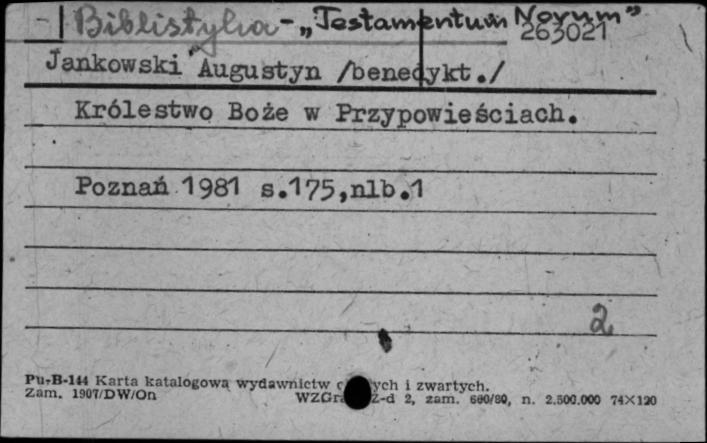 Biblistyka - „Testamentum Novum”
263021
Jankowski Augustyn /benedykt./
Królestwo Boże w Przypowieściach.
Poznań 1981 s.175,nlb.1
2
Pu-B-144 Karta katalogowa wydawnictw ych i zwartych.
Zam. 1907/DW/On WZGra Z-d 2, zam. 680/80, n. 2.500.000 74×120